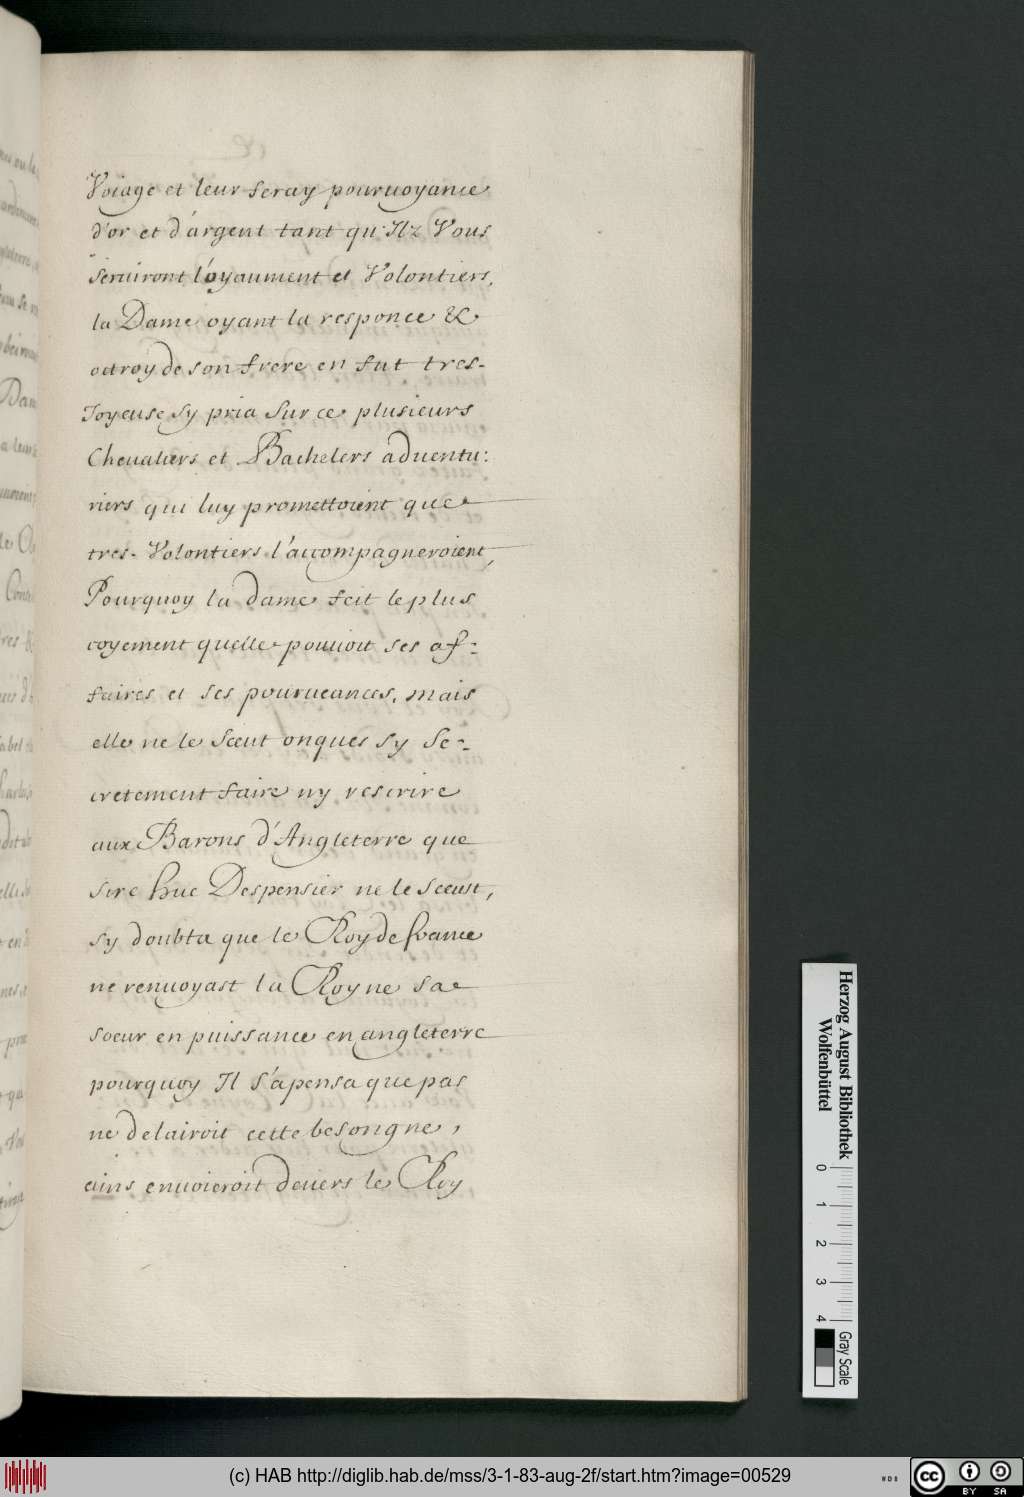 Voiage et leur seray pouruoyance
d'or et d'argent tant qu'Ilz Vous
seruiront loyaument et Volontiers,
la Dame oyant la responce &
octroy de son frere en fut tres-
Joyeuse sy pria sur ce plusieurs
Cheualiers et Bachelers aduentu:
riers qui luy promettoient que
tres-Volontiers l'accompagneroient,
Pourquoy la dame feit le plus
coyement quelle pouuoit ses af-
faires et ses pourueances, mais
elle ne le sceut onques sy se-
cretement faire ny rescrire
aux Barons d'Angleterre que
sire hue Despensier ne le sceust,
sy doubta que le Roy de france
ne renuoyast la Royne sa
soeur en puissance en angleterre
pourquoy Il s'apensa que pas
ne delairoit cette besongne,
ains enuoieroit deuers le Roy
Herzog August Bibliothek
Wolfenbüttel
0 1 2 3 4
Gray Scale
(c) HAB http://diglib.hab.de/mss/3-1-83-aug-2f/start.htm?image=00529
cc BY SA